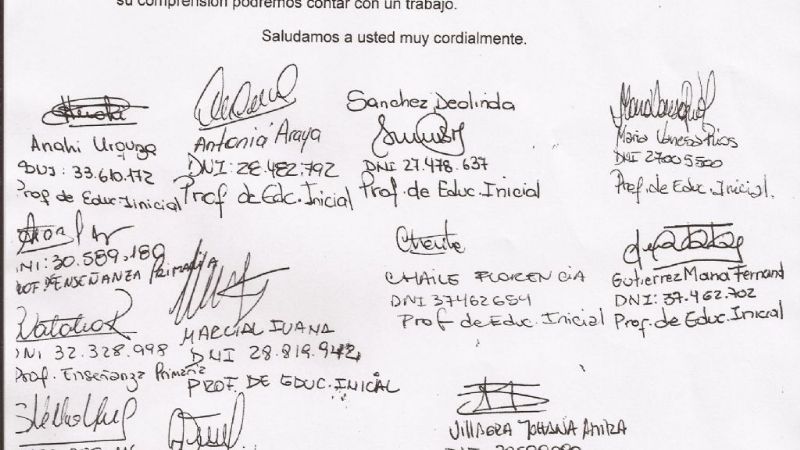 su comprensión podremos contar con un trabajo.
Saludamos a usted muy cordialmente.
Anahi Urquiza
DNI: 33.610.172
Prof de Educ. Iinicial
Antonia Araya
DNI: 28.482.792
Prof de Edc. Inicial
Sanchez Deolinda
DNI 27.478.637
Prof. de Educ. Inicial
Maria Vanesa Rios
DNI 27005500
Prof. de Educ. Inicial.
NI: 30.589.189
ENSEÑANZA PRIMARIA
CHAILE FLORENCIA
DNI 37462654
Prof de Educ. Inicial
Gutierrez Maria Fernand
DNI: 37.462.702
Prof. de Educ. Inicial
DNI 32.328.998
Prof. Enseñanza Primaria
MARCIAL JUANA
DNI 28.819.942
PROF. DE EDUC. INICIAL
JOHANA